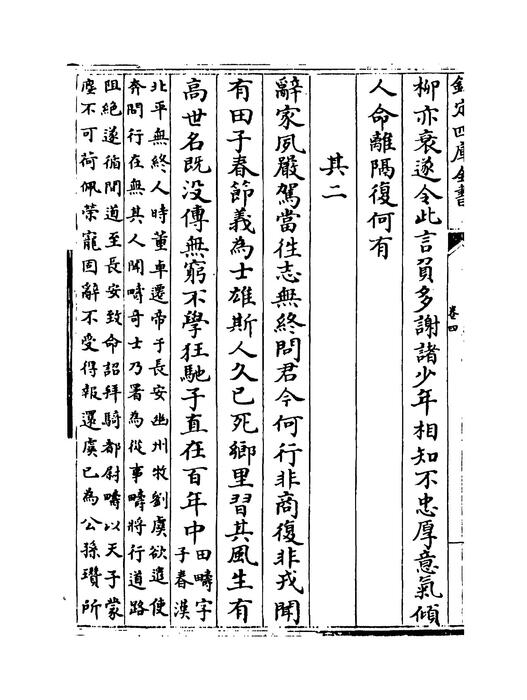 欽定四庫全書
卷四
柳亦衰遂令此言負多謝諸少年相知不忠厚意氣傾
人命離隔復何有
其二
辭家夙嚴駕當往志無終問君今何行非商復非戎聞
有田子春節義為士雄斯人久已死鄉里習其風生有
高世名既沒傳無窮不學狂馳子直在百年中
田疇字
子春漢
北平無終人時董卓遷帝于長安幽州牧劉虞欲遣使
奔問行在無其人聞疇奇士乃署為從事疇將行道路
阻絕遂循間道至長安致命詔拜騎都尉疇以天子蒙
塵不可荷佩榮寵固辭不受得報還虞已為公孫瓚所